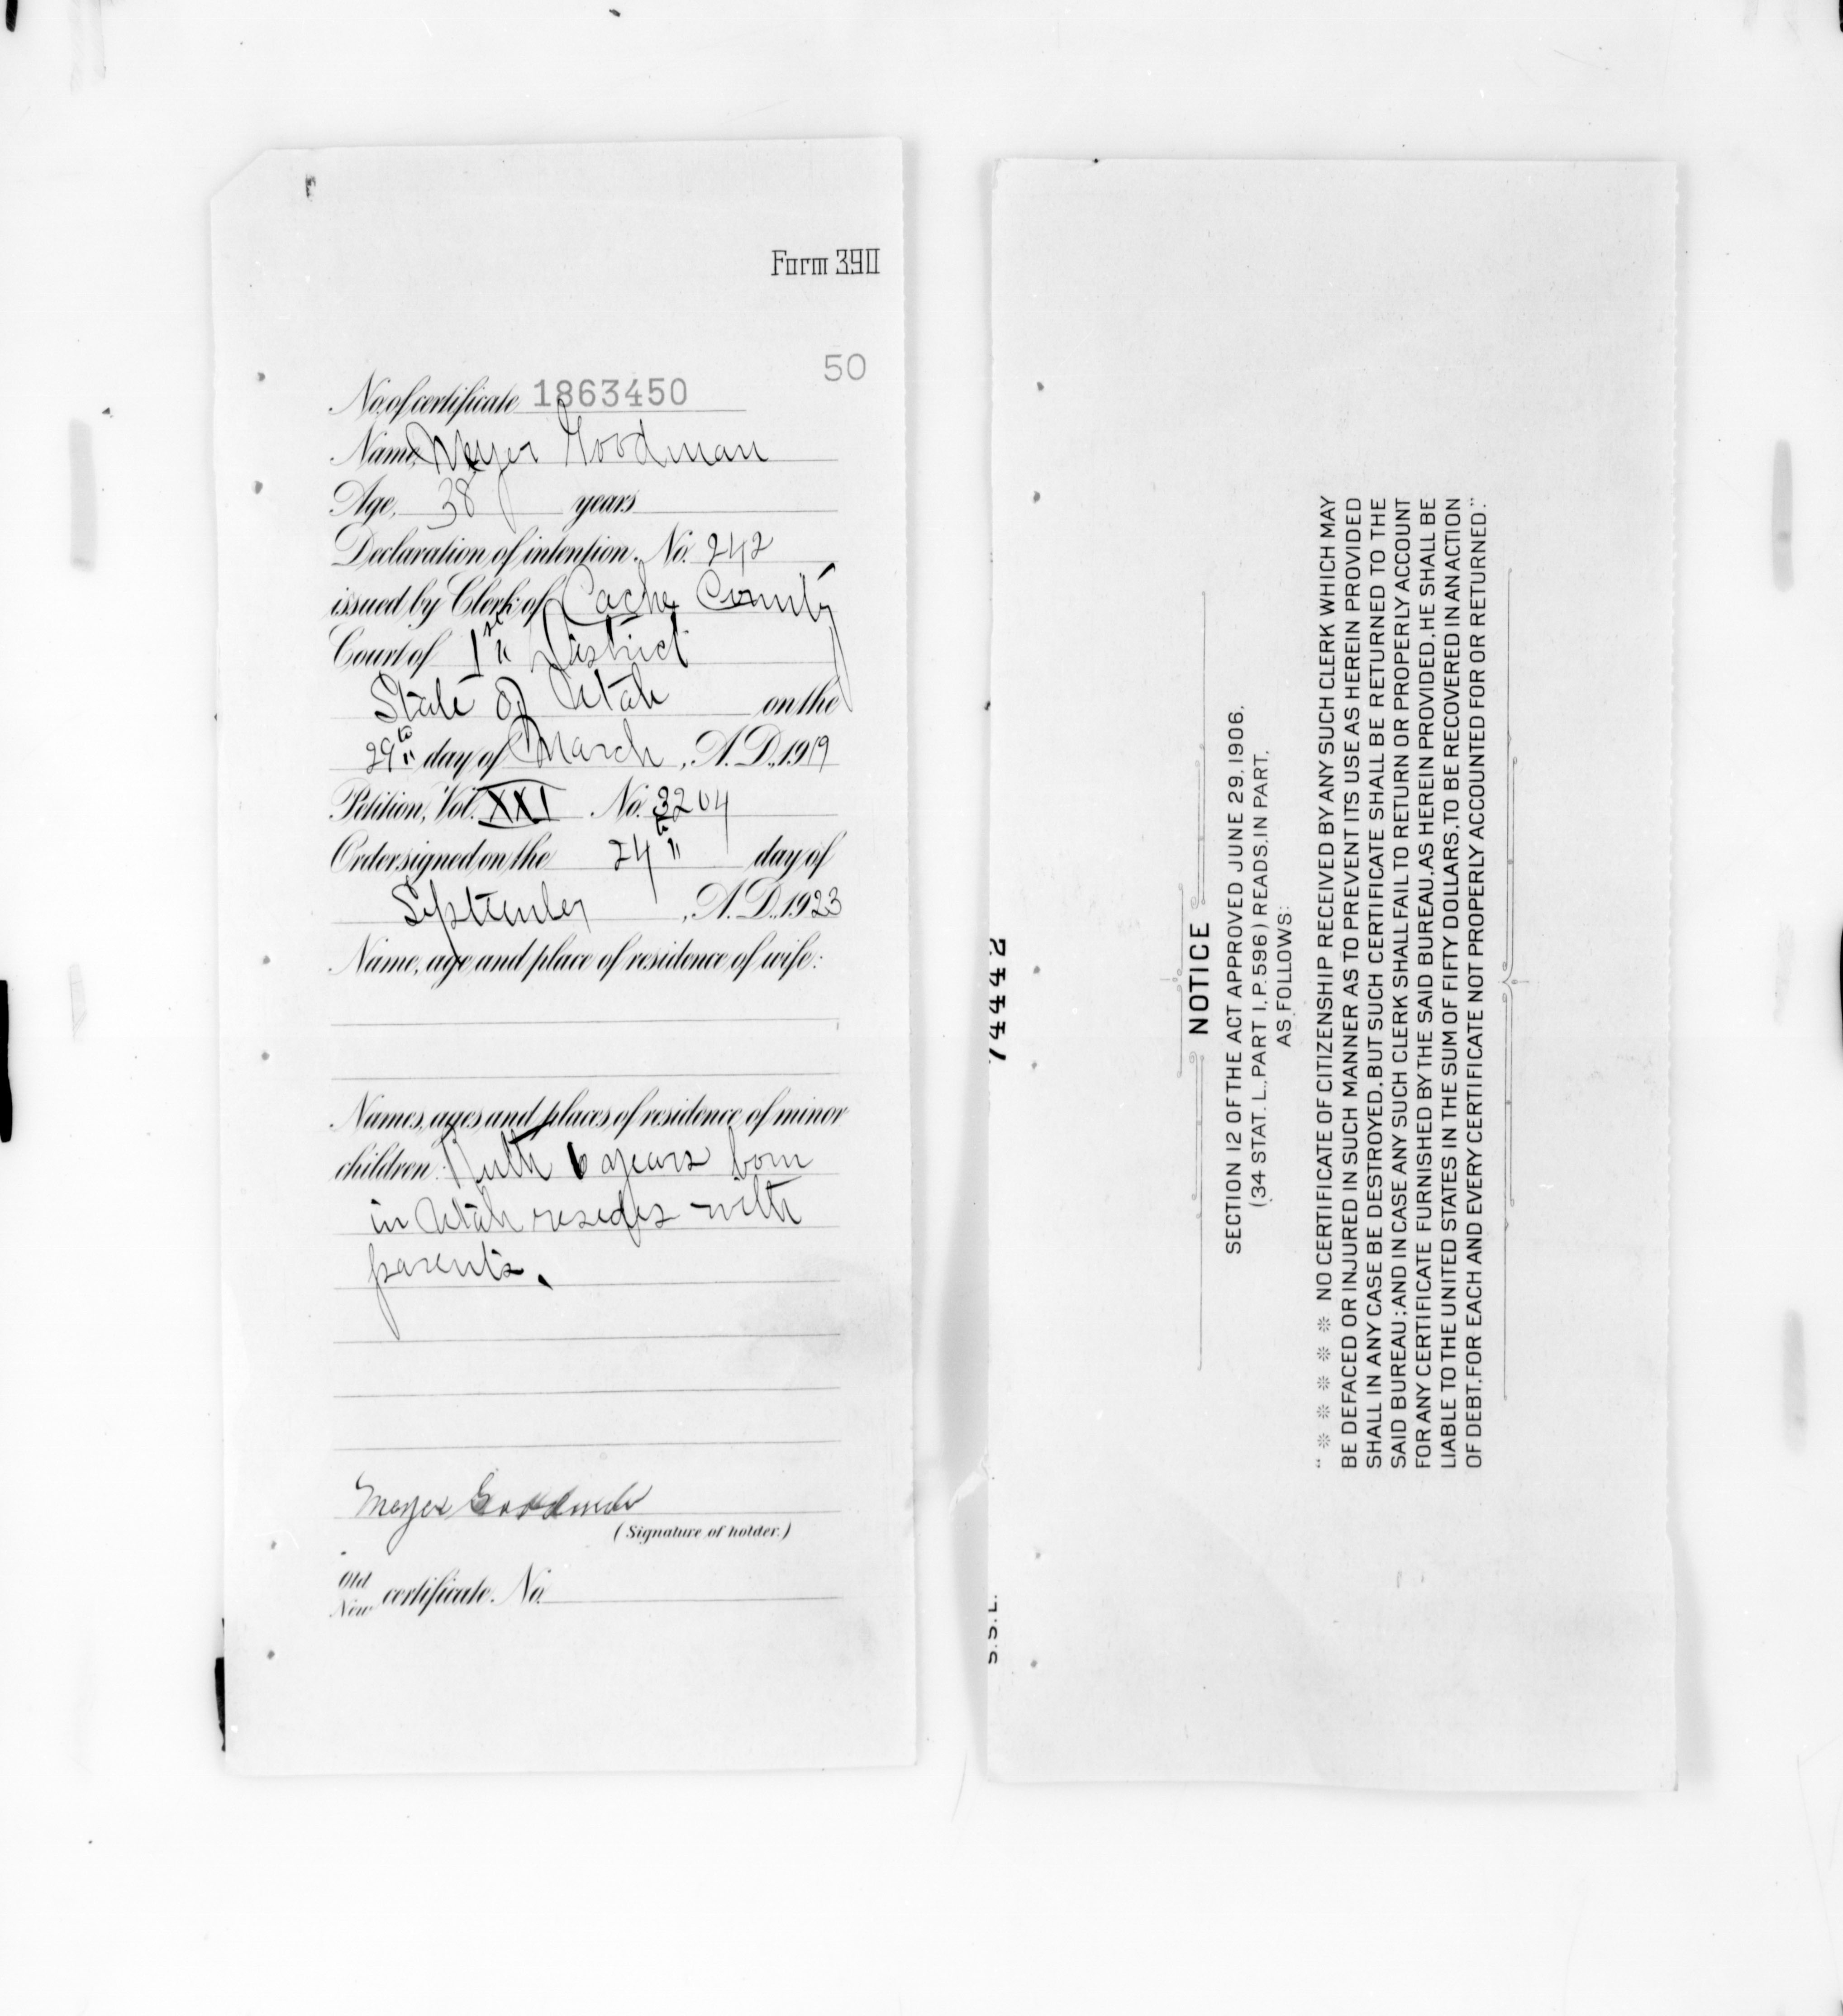 Form 390
50
No. of certificate 1863450
Name, Meyer Goodman
Age, 38 years
Declaration of intention, No. 242
issued by Clerk of Cache County
Court of 1st District
State of Utah on the
29th day of March, A.D. 1919
Petition, Vol. XXI No. 3204
Order signed on the 24th day of
September, A.D. 1923
Name, age and place of residence of wife:
Names, ages and places of residence of minor
children: Ruth 6 years born
in Utah resides with
parents.
Meyer Goodman
(Signature of holder.)
Old
New certificate. No.
74442
S.S.L.
NOTICE
SECTION 12 OF THE ACT APPROVED JUNE 29, 1906,
(34 STAT. L., PART I, P. 596) READS, IN PART,
AS FOLLOWS:
" * * * * * NO CERTIFICATE OF CITIZENSHIP RECEIVED BY ANY SUCH CLERK WHICH MAY
BE DEFACED OR INJURED IN SUCH MANNER AS TO PREVENT ITS USE AS HEREIN PROVIDED
SHALL IN ANY CASE BE DESTROYED, BUT SUCH CERTIFICATE SHALL BE RETURNED TO THE
SAID BUREAU; AND IN CASE ANY SUCH CLERK SHALL FAIL TO RETURN OR PROPERLY ACCOUNT
FOR ANY CERTIFICATE FURNISHED BY THE SAID BUREAU, AS HEREIN PROVIDED, HE SHALL BE
LIABLE TO THE UNITED STATES IN THE SUM OF FIFTY DOLLARS, TO BE RECOVERED IN AN ACTION
OF DEBT, FOR EACH AND EVERY CERTIFICATE NOT PROPERLY ACCOUNTED FOR OR RETURNED."